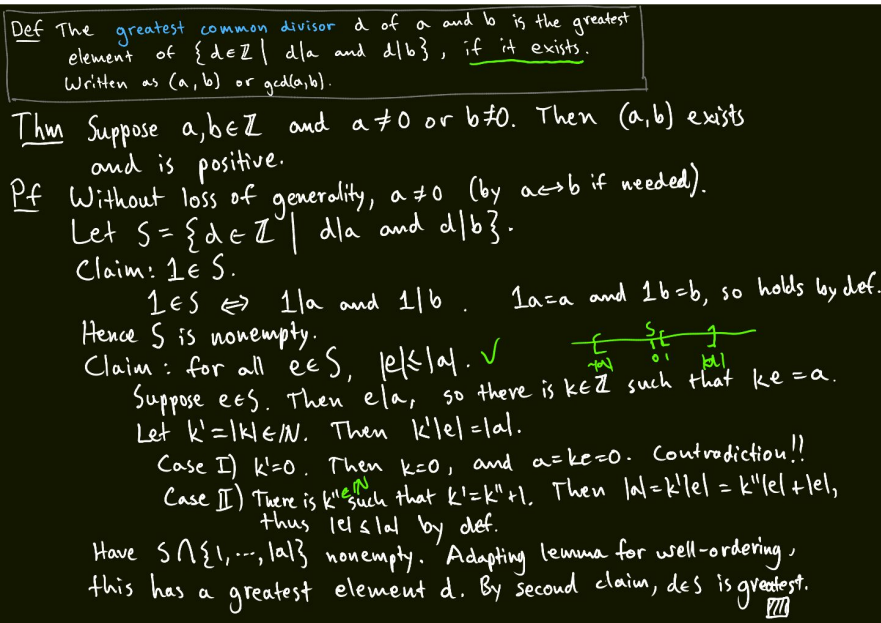 Def The greatest common divisor d of a and b is the greatest
element of {d∈ℤ | d|a and d|b}, if it exists.
Written as (a,b) or gcd(a,b).
Thm Suppose a,b∈ℤ and a≠0 or b≠0. Then (a,b) exists
and is positive.
Pf Without loss of generality, a≠0 (by a↔b if needed).
Let S = {d∈ℤ | d|a and d|b}.
Claim: 1∈S.
1∈S ⇔ 1|a and 1|b. 1a=a and 1b=b, so holds by def.
Hence S is nonempty.
Claim: for all e∈S, |e|≤|a|. ✓
S
-|a| 0 1 |a|
Suppose e∈S. Then e|a, so there is k∈ℤ such that ke=a.
Let k'=|k|∈ℕ. Then k'|e|=|a|.
Case I) k'=0. Then k=0, and a=ke=0. Contradiction!!
Case II) There is k''∈ℕ such that k'=k''+1. Then |a|=k'|e| = k''|e|+|e|,
thus |e|≤|a| by def.
Have S∩{1,...,|a|} nonempty. Adapting lemma for well-ordering,
this has a greatest element d. By second claim, d∈S is greatest.